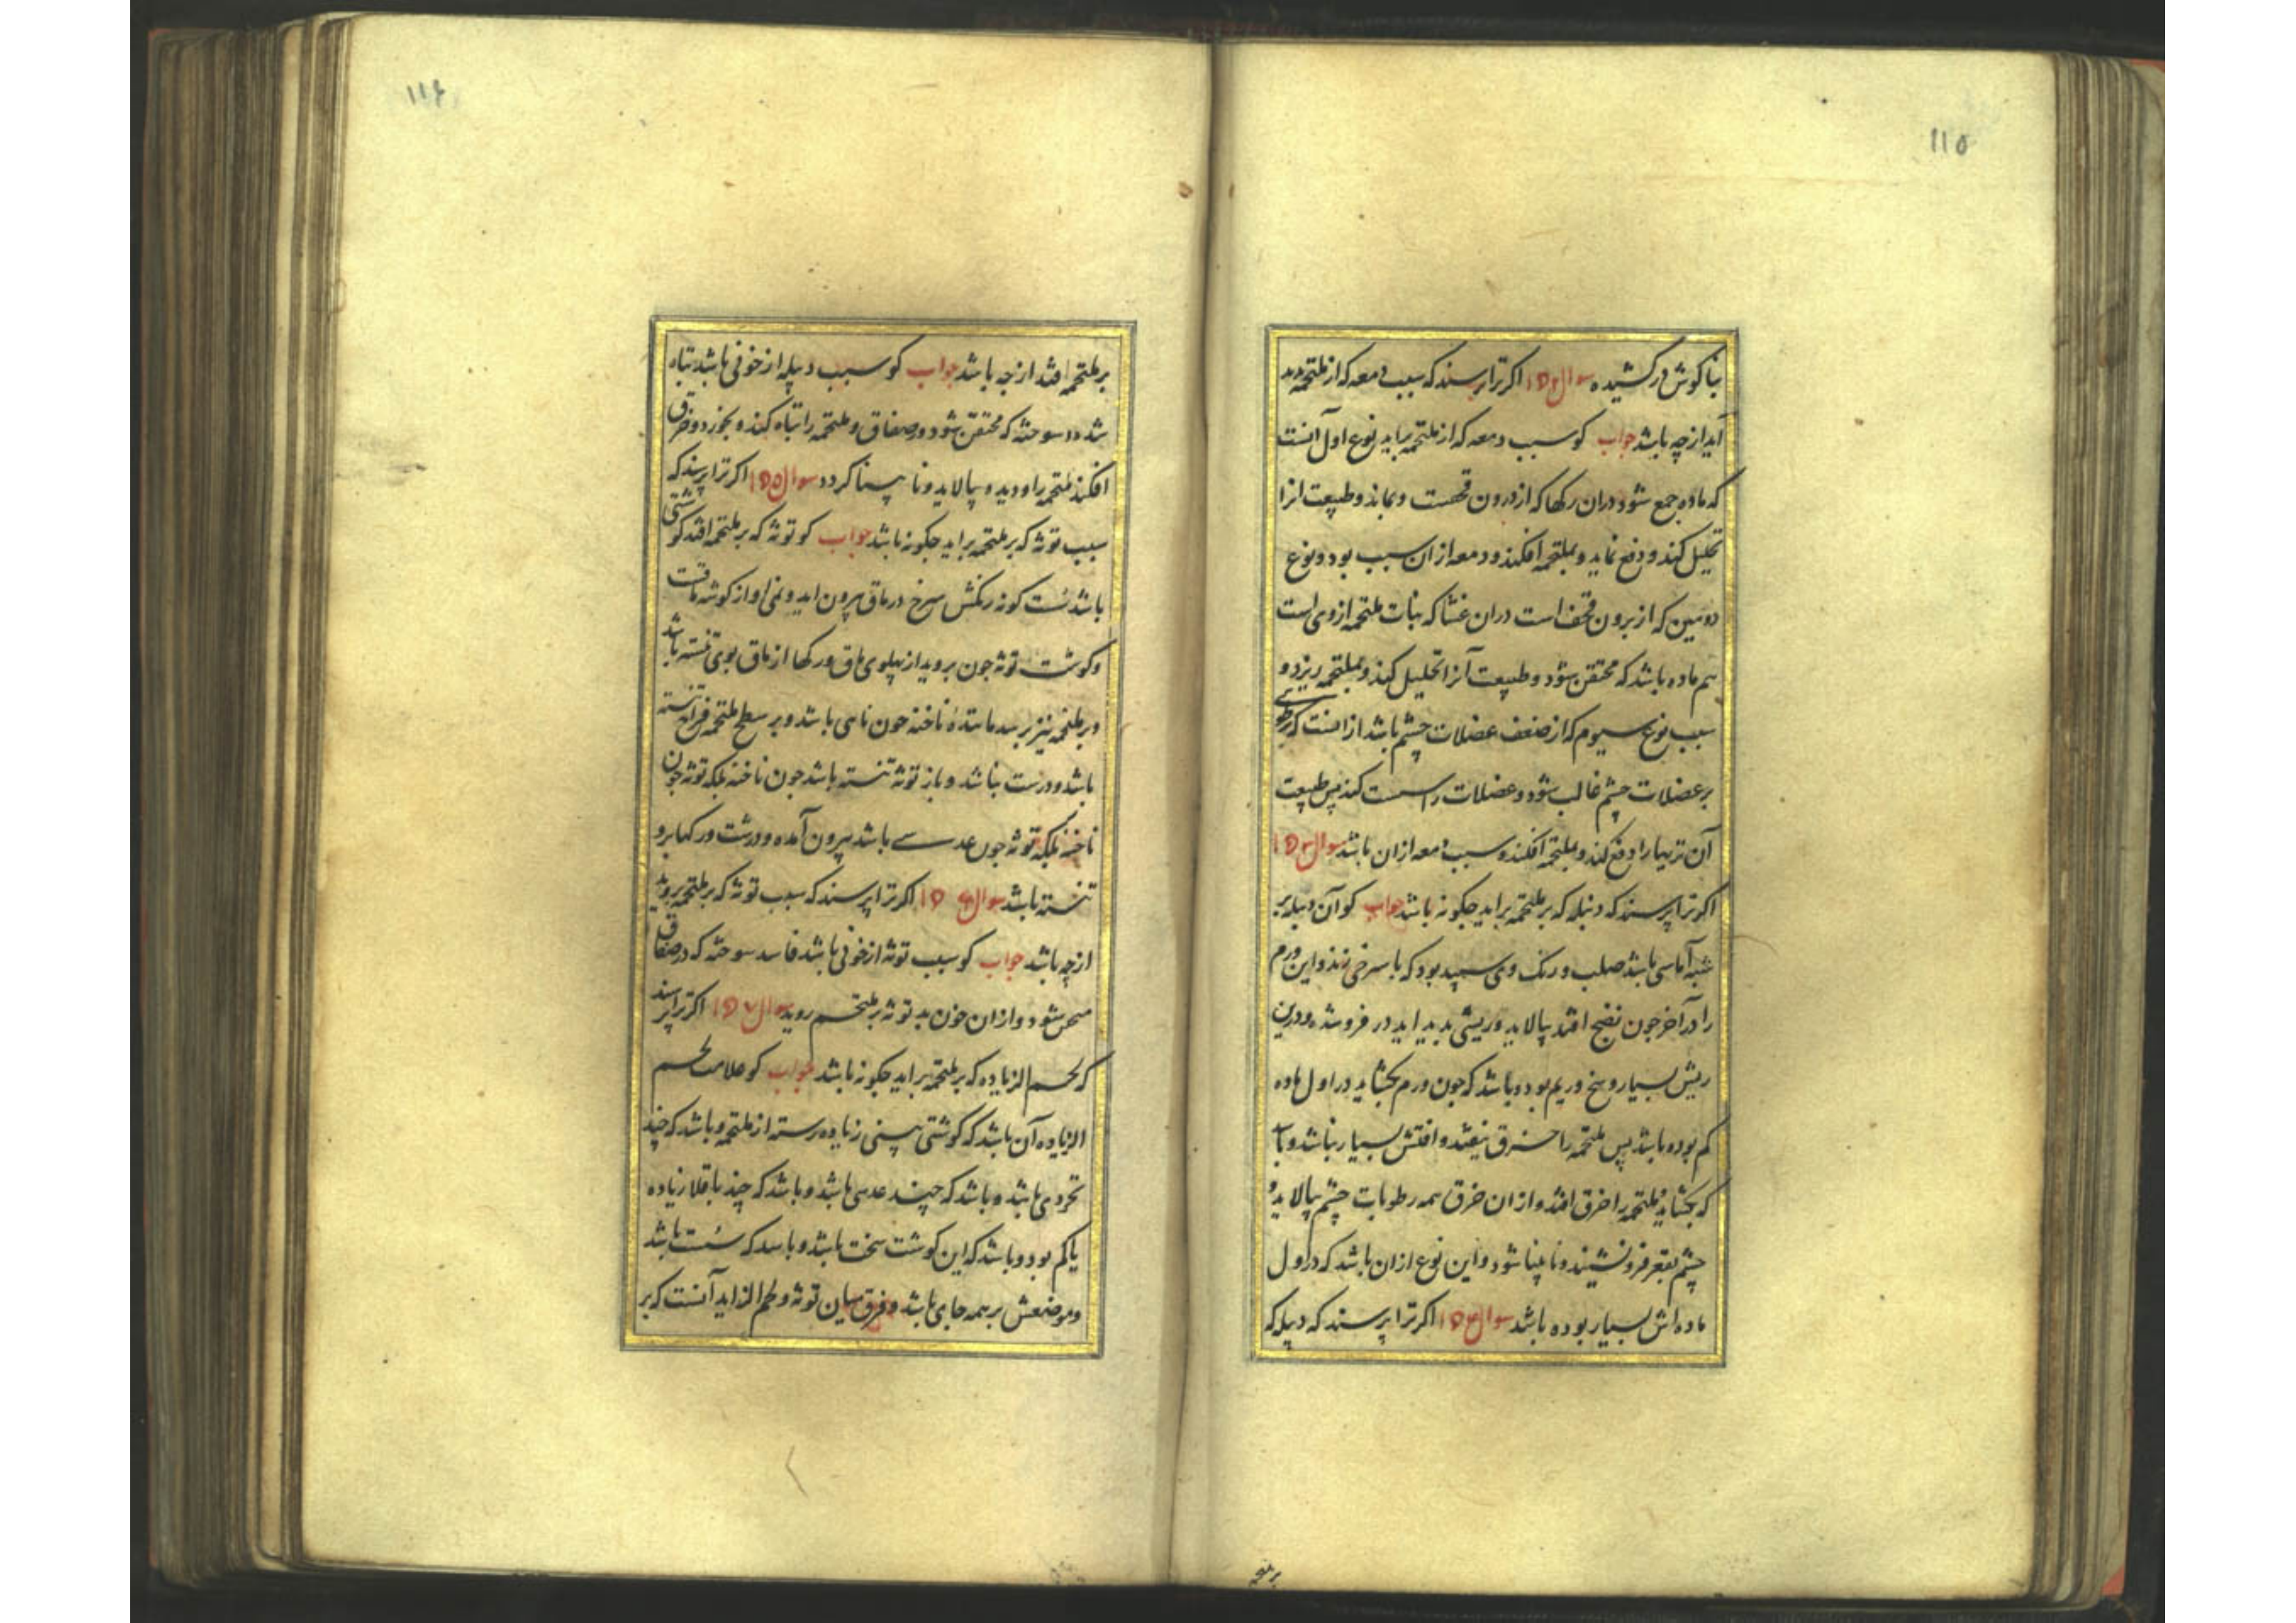 ۱۱۵
بناکوش درکشیده سوال ۱۵۲ اکر ترا پرسند که سبب دمعه که از ملتحمه
آید از چه باشد جواب کو سبب دمعه که از ملتحمه براید نوع اول آنست
که ماده جمع شود دران رکها که از درون قحفست و بماند و طبیعت انرا
تحلیل کند و دفع نماید و بملتحمه افکند و دمعه ازان سبب بود و نوع
دومین که از برون قحف است دران غشا که بنات ملتحمه ازوی است
هم ماده باشد که محتقن شود و طبیعت آنرا تحلیل کند و بملتحمه ریزد و
سبب نوع سیوم که از ضعف عضلات چشم باشد از انست که
بر عضلات چشم غالب شود و عضلات را سست کند پس طبیعت
آن تریها را دفع کند و بملتحمه افکند و سبب دمعه ازان باشد سوال ۱۵۳
اکر ترا پرسند که دبیله که بر ملتحمه براید چکونه باشد جواب کو آن دبیله بر
شبه آماسی باشد صلب و رنک وی سپید بود که با سرخی زند و این ورم
را در آخر چون نضج افتد پالاید و ریشی پدید اید در فروشده و درین
ریش بسیار وسخ و ریم بود و باشد که چون ورم بکشاید در اول ماده
کم بوده باشد پس ملتحمه را خرق نیفتد و افتش بسیار نباشد و باشد
که بکشاید ملتحمه را خرق افتد و ازان خرق همه رطوبات چشم پالاید و
چشم بقعر فرونشیند و نابینا شود و این نوع ازان باشد که در اول
ماده اش بسیار بوده باشد سوال ۱۵۴ اکر ترا پرسند که دبیله که
۱۱۶
بر ملتحمه افتد از چه باشد جواب کو سبب دبیله از خونی باشد تباه
شده سوخته که محتقن شود در صفاق و ملتحمه را تباه کند و بخورد و خرق
افکند ملتحمه را و دیده پالاید و نابینا کردد سوال ۱۵۵ اکر ترا پرسند که
سبب توثه که بر ملتحمه براید چکونه باشد جواب کو توثه که بر ملتحمه افتد کوشتی
باشد سست کونه رنکش سرخ در ماق بیرون اید و نمی او از کوشه ماقست
و کوشت توثه چون بروید از پهلوی ماق و رکها از ماق بوی تنسته باشد
و بر ملتحمه نیز برسد مانندهٔ ناخنه چون نامی باشد و بر سطح ملتحمه فراخ تنسته
باشد و درست بناشد و باز توثه تنسته باشد چون ناخنه بلکه توثه چون
ناخنه بلکه توثه چون عدسی باشد بیرون آمده و درشت و رکها برو
تنسته باشد سوال ۱۵۶ اکر ترا پرسند که سبب توثه که بر ملتحمه بروید
از چه باشد جواب کو سبب توثه از خونی باشد فاسد سوخته که در صفاق
شود و ازان خون بد توثه بر ملتحم روید سوال ۱۵۷ اکر ترا پرسند
که لحم الزیاده که بر ملتحمه براید چکونه باشد جواب کو علامت لحم
الزیاده آن باشد که کوشتی بینی زیاده رسته از ملتحمه و باشد که چند
نخردی باشد و باشد که چند عدسی باشد و باشد که چند باقلا زیاده
یا کم بود و باشد که این کوشت سخت باشد و باشد که سست باشد
و موضعش بر همه جای باشد و فرق میان توثه و لحم الزاید آنست که بر